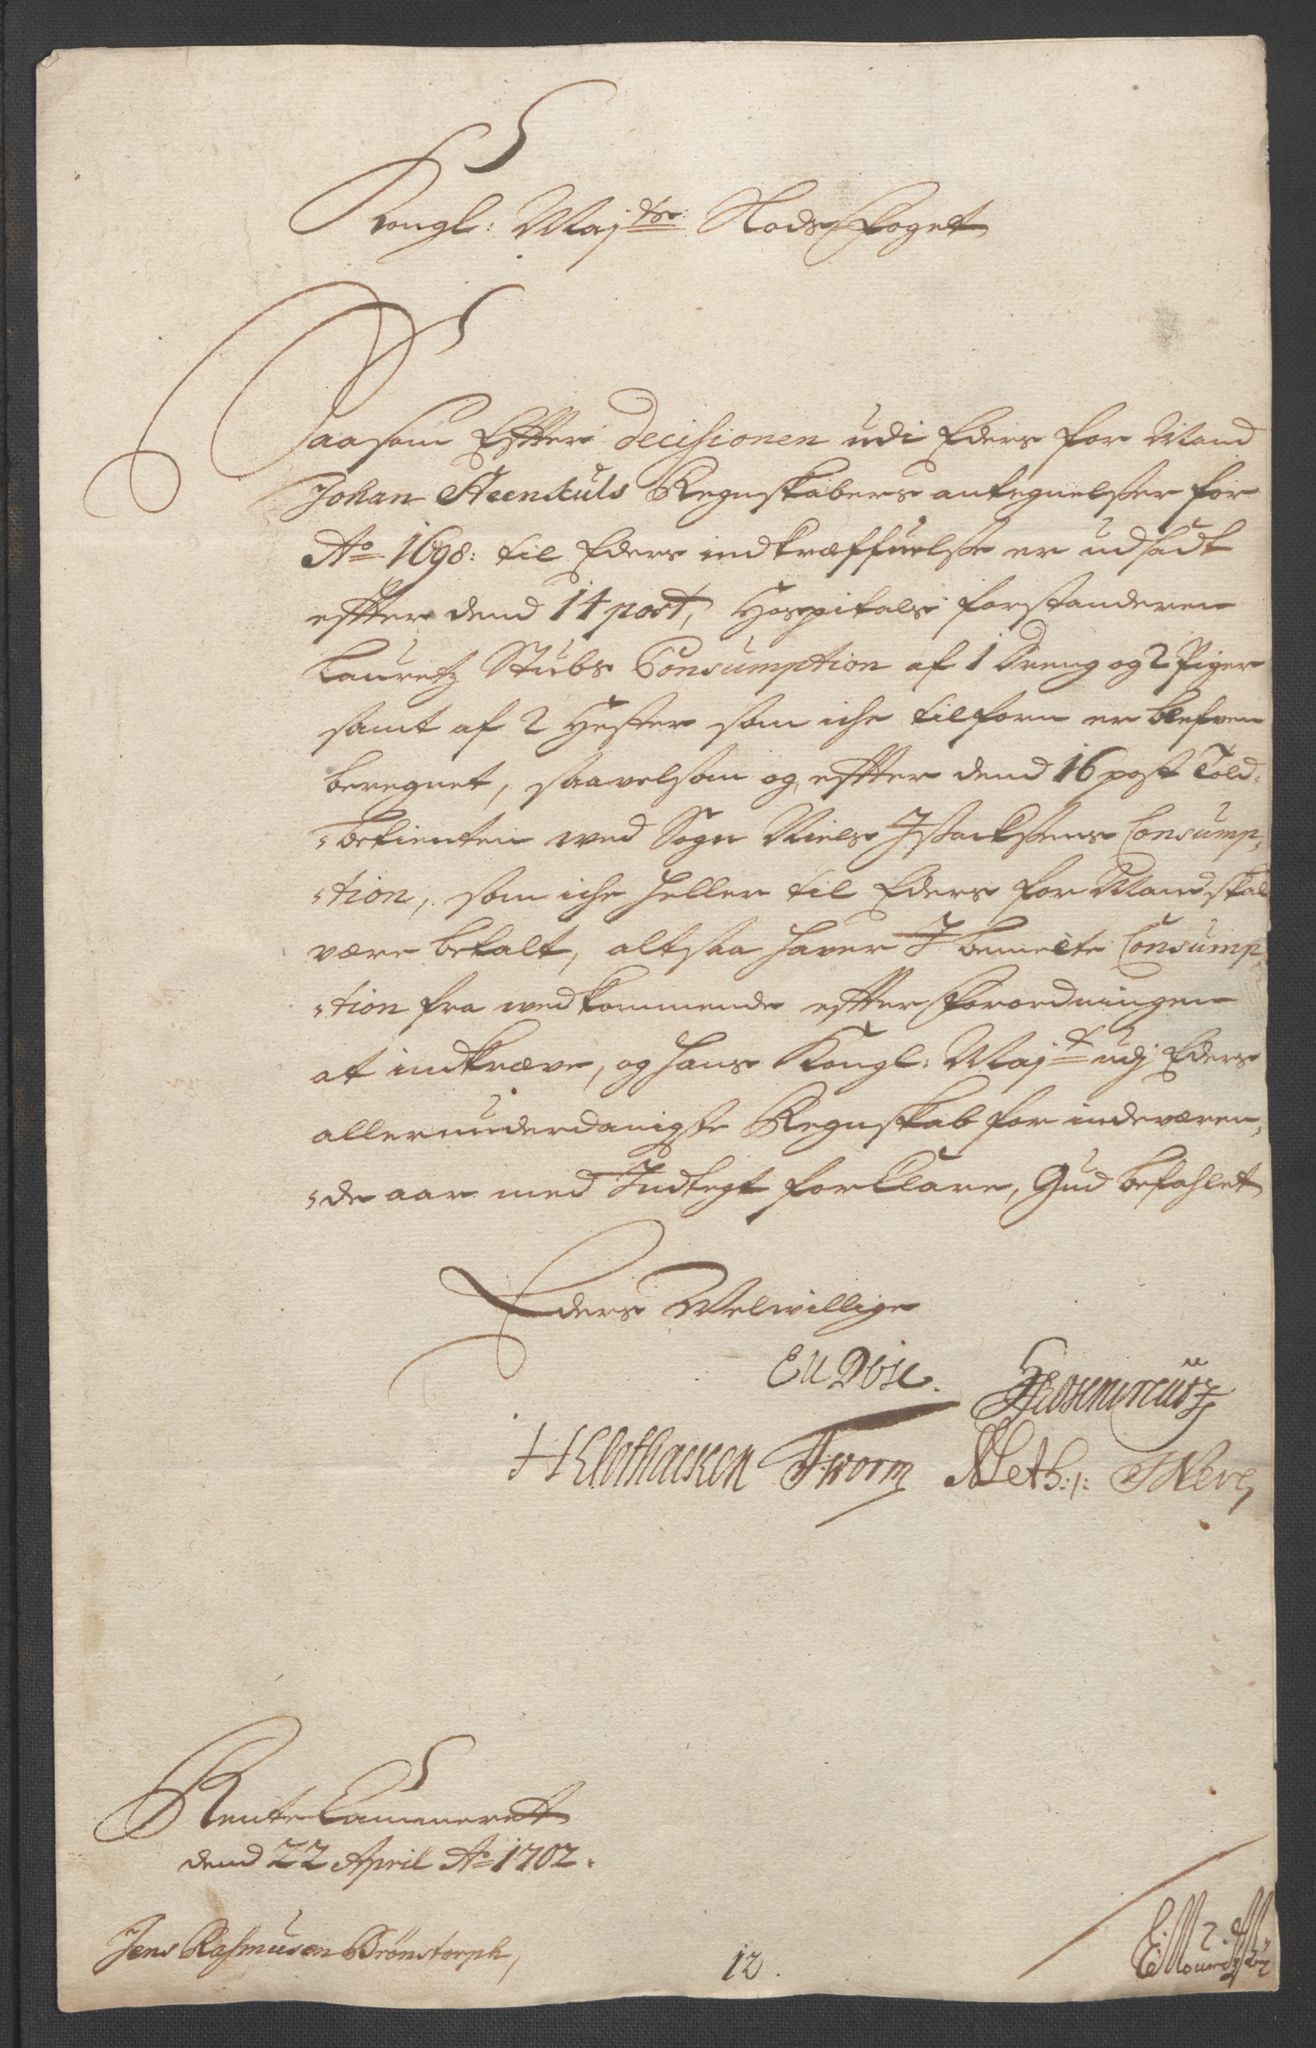 Kongl: Maj:ts Slods Foget
Saasom Effter Decisionen udi Eders for Mand
Johan Steenkuls Regnskabers antegnelßer for
Ao 1698: til Eders indkræffuelße er udsadt
effter dend 14 post, Hospitals forstanderen
Lauretz Stubs Consumption af 1 Dreng og 2 Piger
samt af 2 Hester som iche tilforn er blefven
beregnet, saavelsom og effter dend 16 post Told-
-betienten ved Sogn Niels Isacksens Consump-
-tion, som iche heller til Eders for Mand skal
være betalt, altsaa haver I bemelte Consump-
-tion fra vedkommende effter Forordningen
at indkræve, og hans Kongl: Majt udj Eders
allerunderdanigste Regnskab for indeværen-
-de aar med Indtegt forklare, Gud befahlet
Eders Velwillige
H Rosencreütz
Tworm Meth:/:
Rente Cammeret
dend 22 April Ao 1702.
Jens Rasmusen Brönstorph,
12.